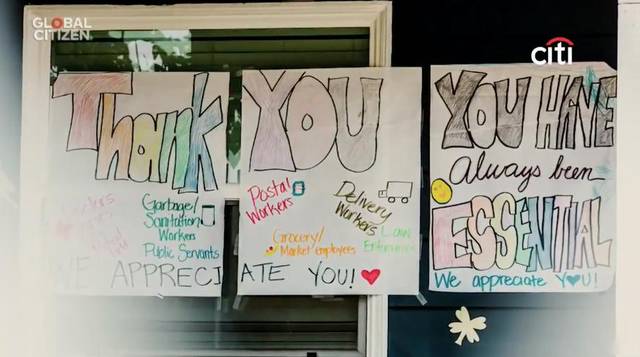 GLOBAL
CITIZEN
citi
Thank
Garbage/
Sanitation
Workers
Public Servants
YOU
Postal
Workers
Delivery
Workers
Grocery/
Market employees
Law
WE APPRECIATE YOU!
YOU HAVE
Always been
ESSENTIAL
We appreciate YOU!